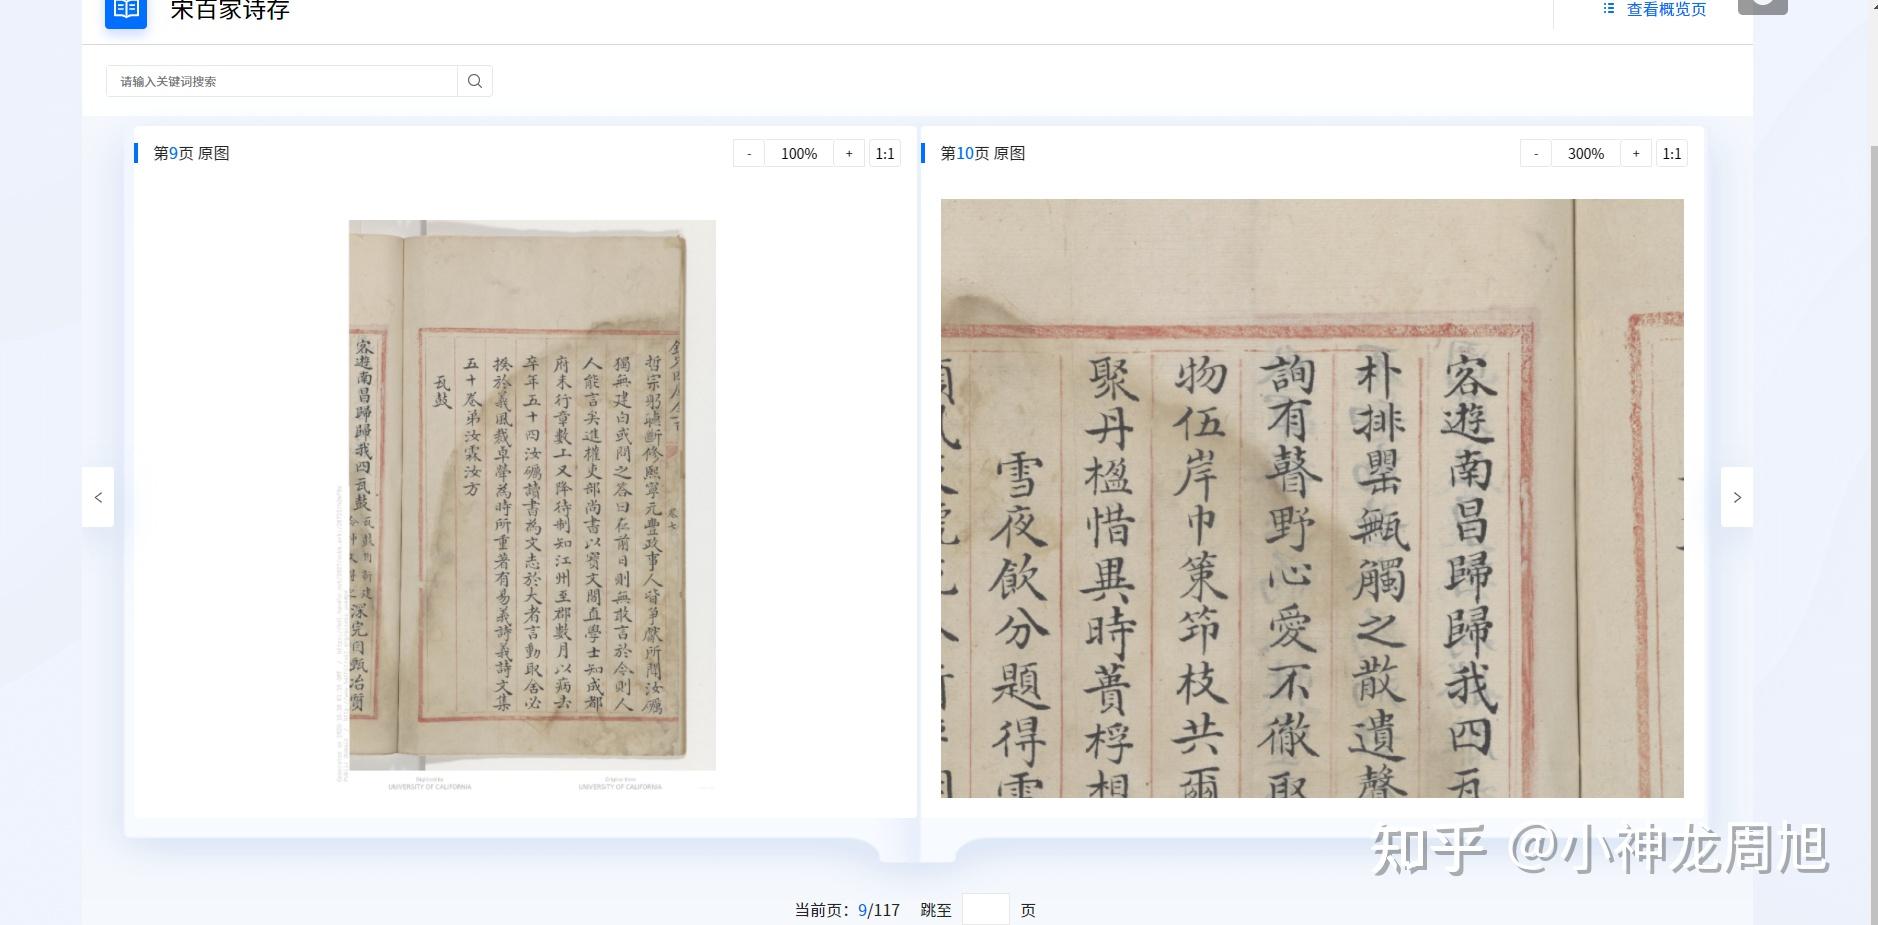 宋百家诗存
查看概览页
请输入关键词搜索
第9页 原图
- 100% + 1:1
哲宗躬聽斷修熙寧元豐政事人皆爭獻所聞汝礪
獨無建白或問之答曰在前日則無敢言於今則人
人能言矣進權吏部尚書以寶文閣直學士知成都
府未行章數上又降待制知江州至郡數月以病去
卒年五十四汝礪讀書為文志於大者言動取舍必
揆於義風裁卓犖為時所重著有易義詩義詩文集
五十卷弟汝霖汝方
瓦鼓
客遊南昌歸歸我四瓦鼓
深完因甄冶質
UNIVERSITY OF CALIFORNIA
UNIVERSITY OF CALIFORNIA
第10页 原图
- 300% + 1:1
客遊南昌歸歸我四瓦
朴排罌甒觸之散遺聲
詢有瞽野心愛不徹取
物伍岸巾策筇枝共爾
聚丹楹惜異時蕢桴相
雪夜飲分題得雪
< >
当前页：9/117 跳至 页
知乎 @小神龙周旭